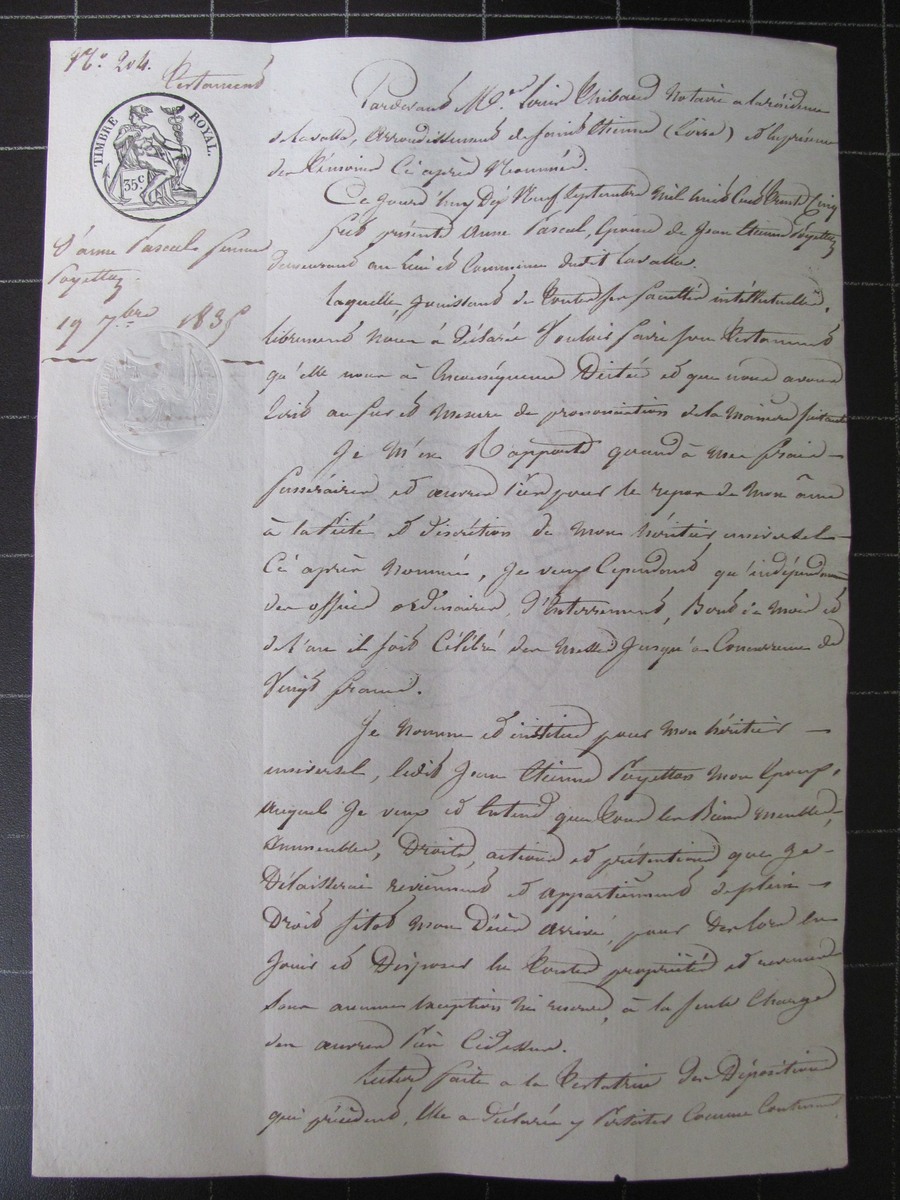 N° 204.
Testament
TIMBRE ROYAL.
35c
D'anne Pascal femme
Poyetton
19 7bre 1835
Pardevant Me Louis Thibaud Notaire a la résidence
de Lavalla, arrondissement de Saint Etienne (Loire) et en présence
des Témoins Ci après Nommés.
Ce Jourd'huy Dix Neuf Septembre Mil huit Cent Trente Cinq
fut présente Anne Pascal, Epouse de Jean Etienne Poyetton
Demeurant au lieu et Commune dudit Lavalla.
Laquelle, jouissant de Toutes ses facultés intéllectuelles,
librement nous à Déclaré Vouloir faire son Testament
qu'elle nous à Conséquence Dicté et que nous avons
Ecrit au fur et Mesure de prononciation de la Manière suivante
Je M'en Rapporte quand à Mes frais
funéraires et œuvres Pies pour le repos de Mon âme
à la Piété et discrétion de Mon héritier universel
Ci après Nommé, Je veux Cependant qu'indépendamment
des offices ordinaires, d'Enterrement, Bout de Mois et
de l'an il soit Célébré des Messes Jusqu'à Concurrence de
Vingt francs.
Je Nomme et institue pour Mon héritier
universel, ledit Jean Etienne Poyetton Mon Epoux,
auquel Je veux et Entend que Tous les Biens Meubles,
Immeubles, Droits, actions et prétentions que Je
Délaisserai reviennent et appartiennent de plein
Droit sitot Mon Décès Arrivé, pour des lors en
Jouir et Disposer en Toute propriété et revenus
Sans aucune Exception Ni reserve, à la seule Charge
des œuvres Pies Cidessus.
Lecture faite a la Testatrice des Dispositions
qui précèdent, Elle a Déclaré y Persister Comme Contenant